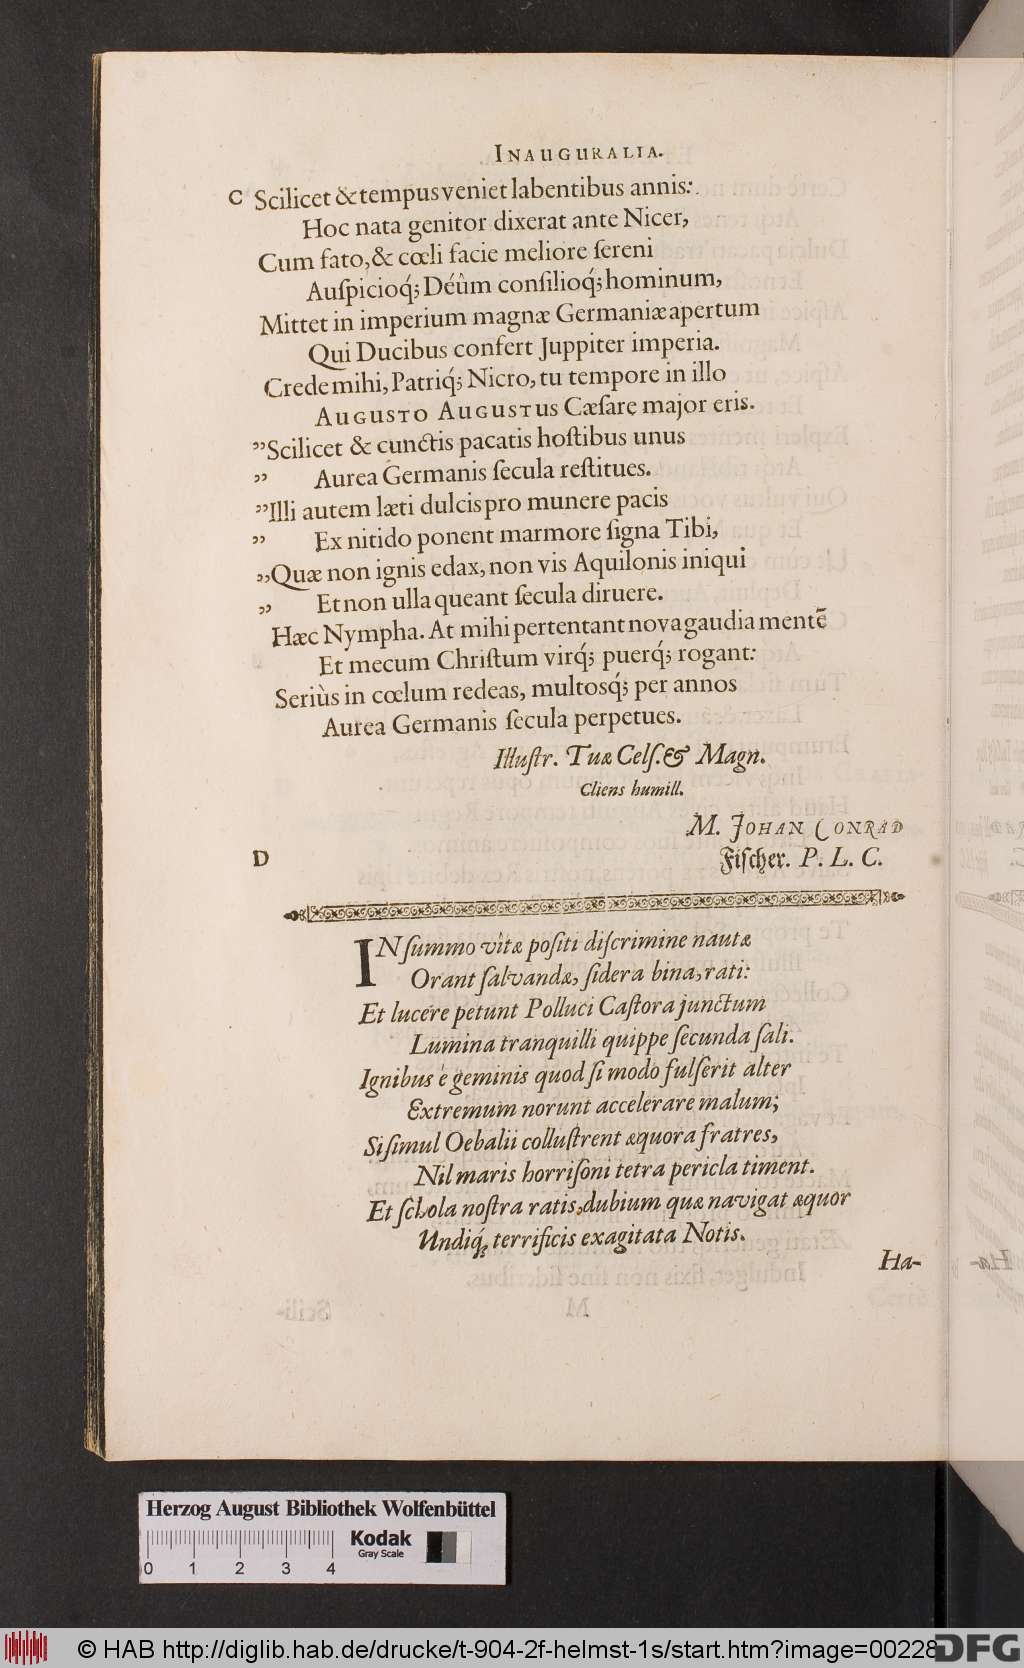 INAUGURALIA.
C Scilicet & tempus veniet labentibus annis:
Hoc nata genitor dixerat ante Nicer,
Cum fato, & cœli facie meliore ſereni
Auſpicioq́; Déûm conſilioq́; hominum,
Mittet in imperium magnæ Germaniæ apertum
Qui Ducibus confert Juppiter imperia.
Crede mihi, Patriq́; Nicro, tu tempore in illo
AUGUSTO AUGUSTus Cæſare major eris.
„Scilicet & cunctis pacatis hoſtibus unus
„ Aurea Germanis ſecula reſtitues.
„Illi autem læti dulcis pro munere pacis
„ Ex nitido ponent marmore ſigna Tibi,
„Quæ non ignis edax, non vis Aquilonis iniqui
„ Et non ulla queant ſecula diruere.
Hæc Nympha. At mihi pertentant nova gaudia mentē
Et mecum Chriſtum virq́; puerq́; rogant:
Seriùs in cœlum redeas, multosq́; per annos
Aurea Germanis ſecula perpetues.
Illuſtr. Tuæ Celſ. & Magn.
Cliens humill.
M. JOHAN CONRAD
D Fiſcher. P. L. C.
IN ſummo vitæ poſiti diſcrimine nautæ
Orant ſalvandæ, ſidera bina, rati:
Et lucere petunt Polluci Caſtora junctum
Lumina tranquilli quippe ſecunda ſali.
Ignibus è geminis quod ſi modò fulſerit alter
Extremum norunt accelerare malum;
Si ſimul Oebalii colluſtrent æquora fratres,
Nil maris horriſoni tetra pericla timent.
Et ſchola noſtra ratis, dubium quæ navigat æquor
Undiq́; terrificis exagitata Notis.
Ha-
Herzog August Bibliothek Wolfenbüttel
Kodak
Gray Scale
0 1 2 3 4
© HAB http://diglib.hab.de/drucke/t-904-2f-helmst-1s/start.htm?image=00228
DFG